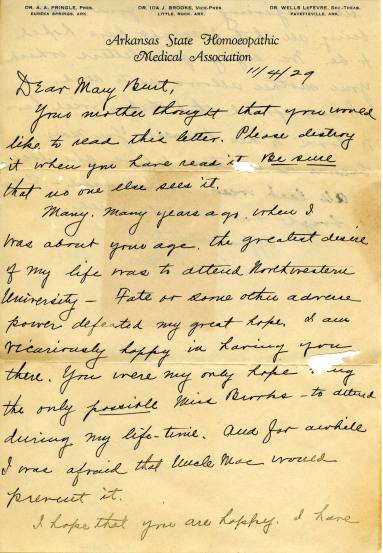 DR. A. A. PRINGLE, PRES. DR. IDA J. BROOKS, VICE-PRES. DR. WELLS LEFEVRE, SEC.-TREAS.
EUREKA SPRINGS, ARK. LITTLE ROCK, ARK. FAYETTEVILLE, ARK.
Arkansas State Homoeopathic
Medical Association
11/4/29
Dear Mary Burt,
Your mother thought that you would
like to read this letter. Please destroy
it when you have read it Be sure
that no one else sees it.
Many. Many years ago. when I
was about your age. the greatest desire
of my life was to attend Northwestern
University - Fate or some other adverse
power defeated my great hope. I am
vicariously happy in having you
there. You were my only hope
the only possible Miss Brooks - to attend
during my life-time. And for awhile
I was afraid that Uncle Mac would
prevent it.
I hope that you are happy. I have